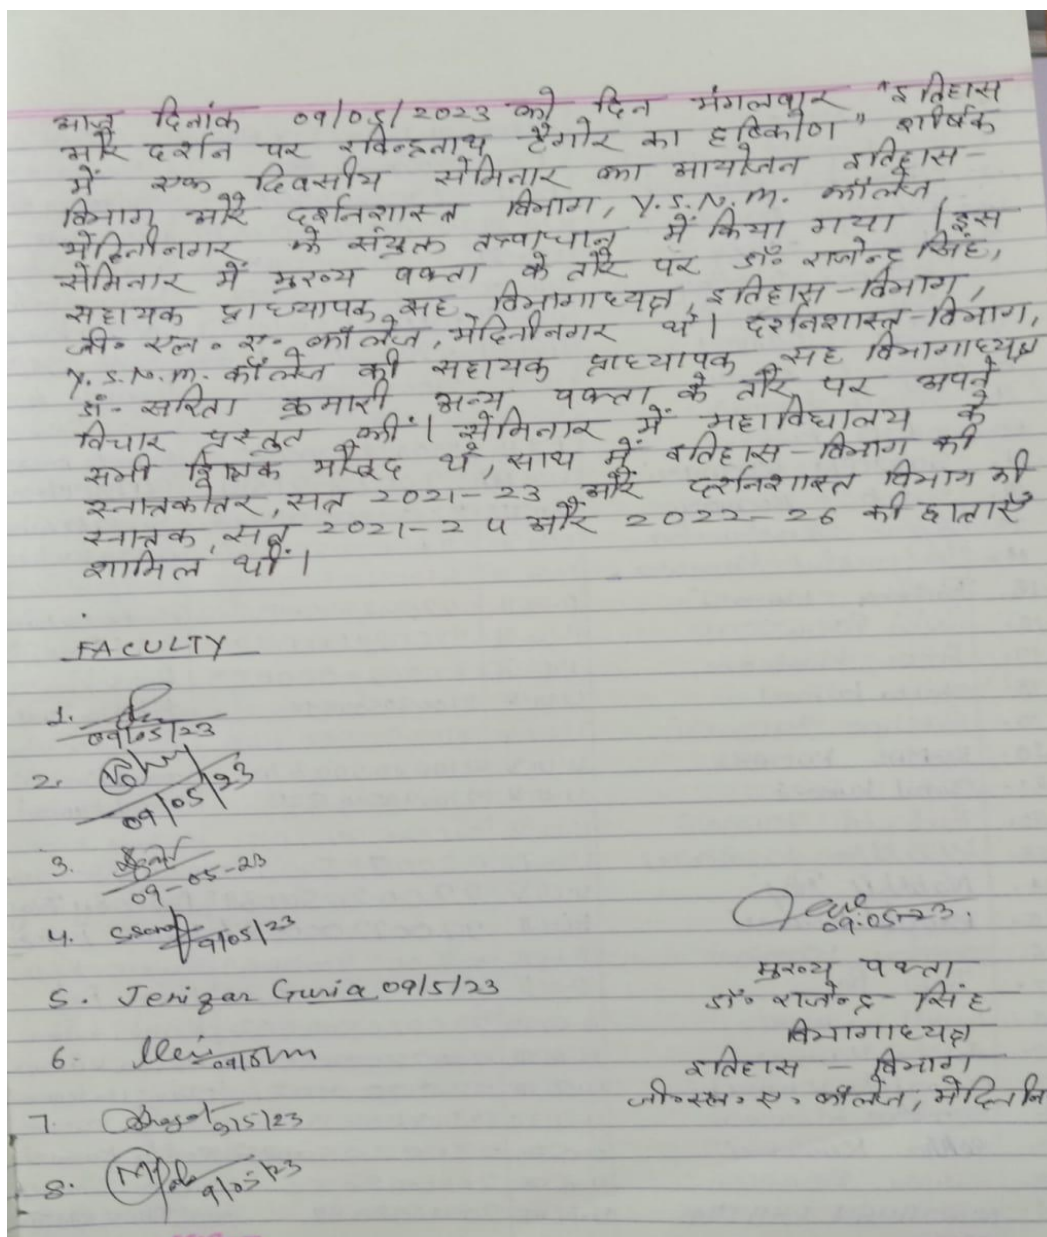 आज दिनांक 09/05/2023 को दिन मंगलवार "इतिहास
और दर्शन पर रविन्द्रनाथ टैगोर का दृष्टिकोण" शीर्षक
में एक दिवसीय सेमिनार का आयोजन इतिहास-
विभाग और दर्शनशास्त्र विभाग, Y.S.N.M. कॉलेज,
मेदिनीनगर के संयुक्त तत्वाधान में किया गया। इस
सेमिनार में मुख्य वक्ता के तौर पर डॉ॰ राजेन्द्र सिंह,
सहायक प्राध्यापक सह विभागाध्यक्ष, इतिहास-विभाग,
जी॰ एल॰ ए॰ कॉलेज, मेदिनीनगर थे। दर्शनशास्त्र-विभाग,
Y.S.N.M. कॉलेज की सहायक प्राध्यापक सह विभागाध्यक्ष
डॉ॰ सरिता कुमारी अन्य वक्ता के तौर पर अपने
विचार प्रस्तुत कीं। सेमिनार में महाविद्यालय के
सभी शिक्षक मौजूद थे, साथ में इतिहास-विभाग की
स्नात्तकोतर, सत्र 2021-23 और दर्शनशास्त्र विभाग की
स्नात्तक, सत्र 2021-24 और 2022-26 की छात्राएँ
शामिल थीं।
FACULTY
1.
09/05/23
2.
09/05/23
3.
09-05-23
4. 9/05/23
09.05.23.
5. Jenigar Guria 09/5/23
मुख्य वक्ता
डॉ॰ राजेन्द्र सिंह
विभागाध्यक्ष
6.
इतिहास - विभाग
जी॰ एल॰ ए॰ कॉलेज, मेदिनी
7. 9/5/23
8. 9/05/23